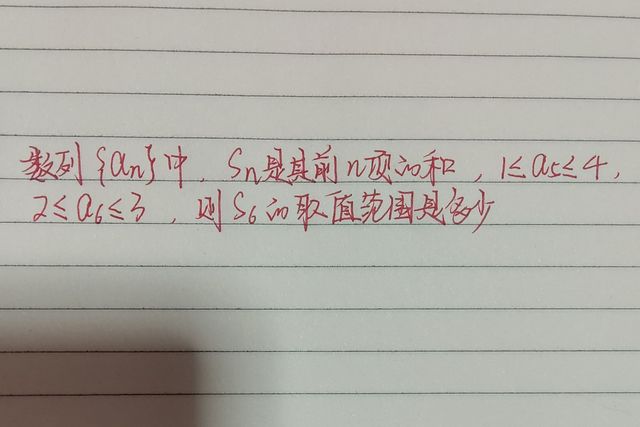 数列{an}中，Sn是其前n项的和，1≤a5≤4，
2≤a6≤3，则S6的取值范围是多少